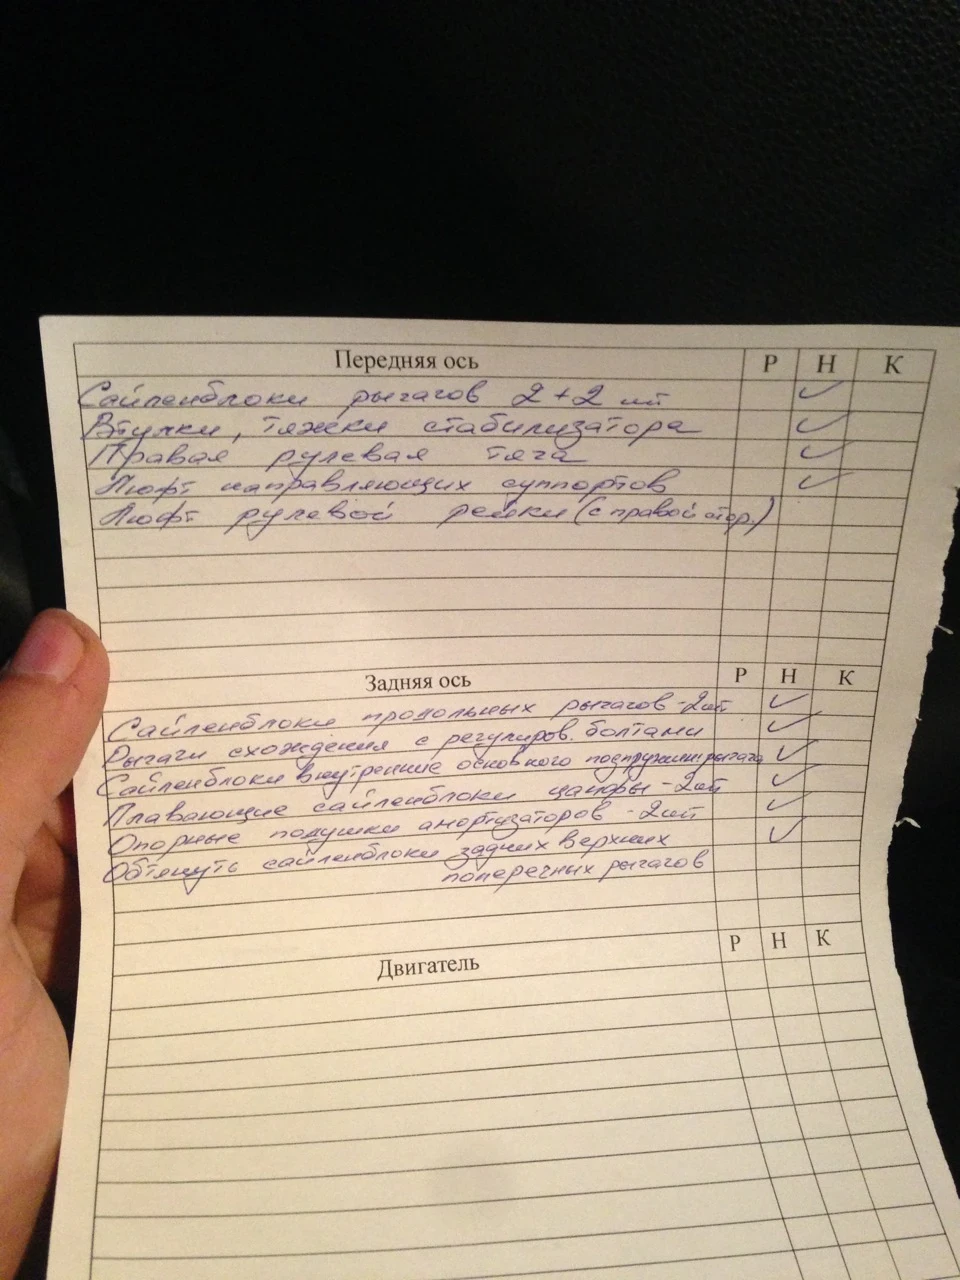 Передняя ось Р Н К
Сайленблоки рычагов 2+2 шт ✓
Втулки, тяжки стабилизатора ✓
Правая рулевая тяга ✓
Люфт направляющих суппортов ✓
Люфт рулевой рейки (с правой стор.)
Задняя ось Р Н К
Сайленблоки продольных рычагов - 2шт ✓
Рычаги схождения с регулиров. болтами ✓
Сайленблоки внутренние основного подпружин. рычага ✓
Плавающие сайленблоки цапфы - 2шт ✓
Опорные подушки амортизаторов - 2шт ✓
Обтянуть сайленблоки задних верхних ✓
поперечных рычагов
Двигатель Р Н К